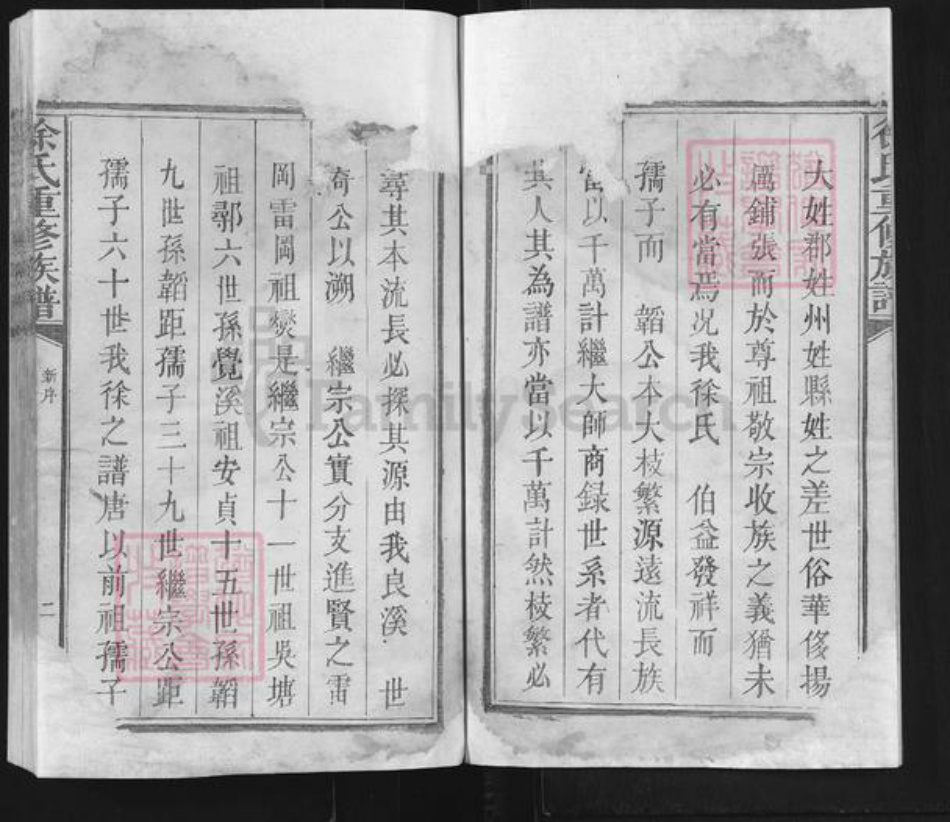 大姓郡姓州姓縣姓之差世俗華侈揚
厲鋪張而於尊祖敬宗收族之義猶未
必有當焉况我徐氏　伯益發祥而
孺子而　韜公本大枝繁源遠流長族
當以千萬計繼大師商録世系者代有
其人其為譜亦當以千萬計然枝繁必
尋其本流長必探其源由我良溪　世
奇公以溯　繼宗公實分支進賢之雷
岡雷岡祖爕是繼宗公十一世祖吳塘
祖鄠六世孫覺溪祖安貞十五世孫韜
九世孫韜距孺子三十九世繼宗公距
孺子六十世我徐之譜唐以前祖孺子
徐氏重修族譜
新序
二
徐氏重修族譜
FamilySearch